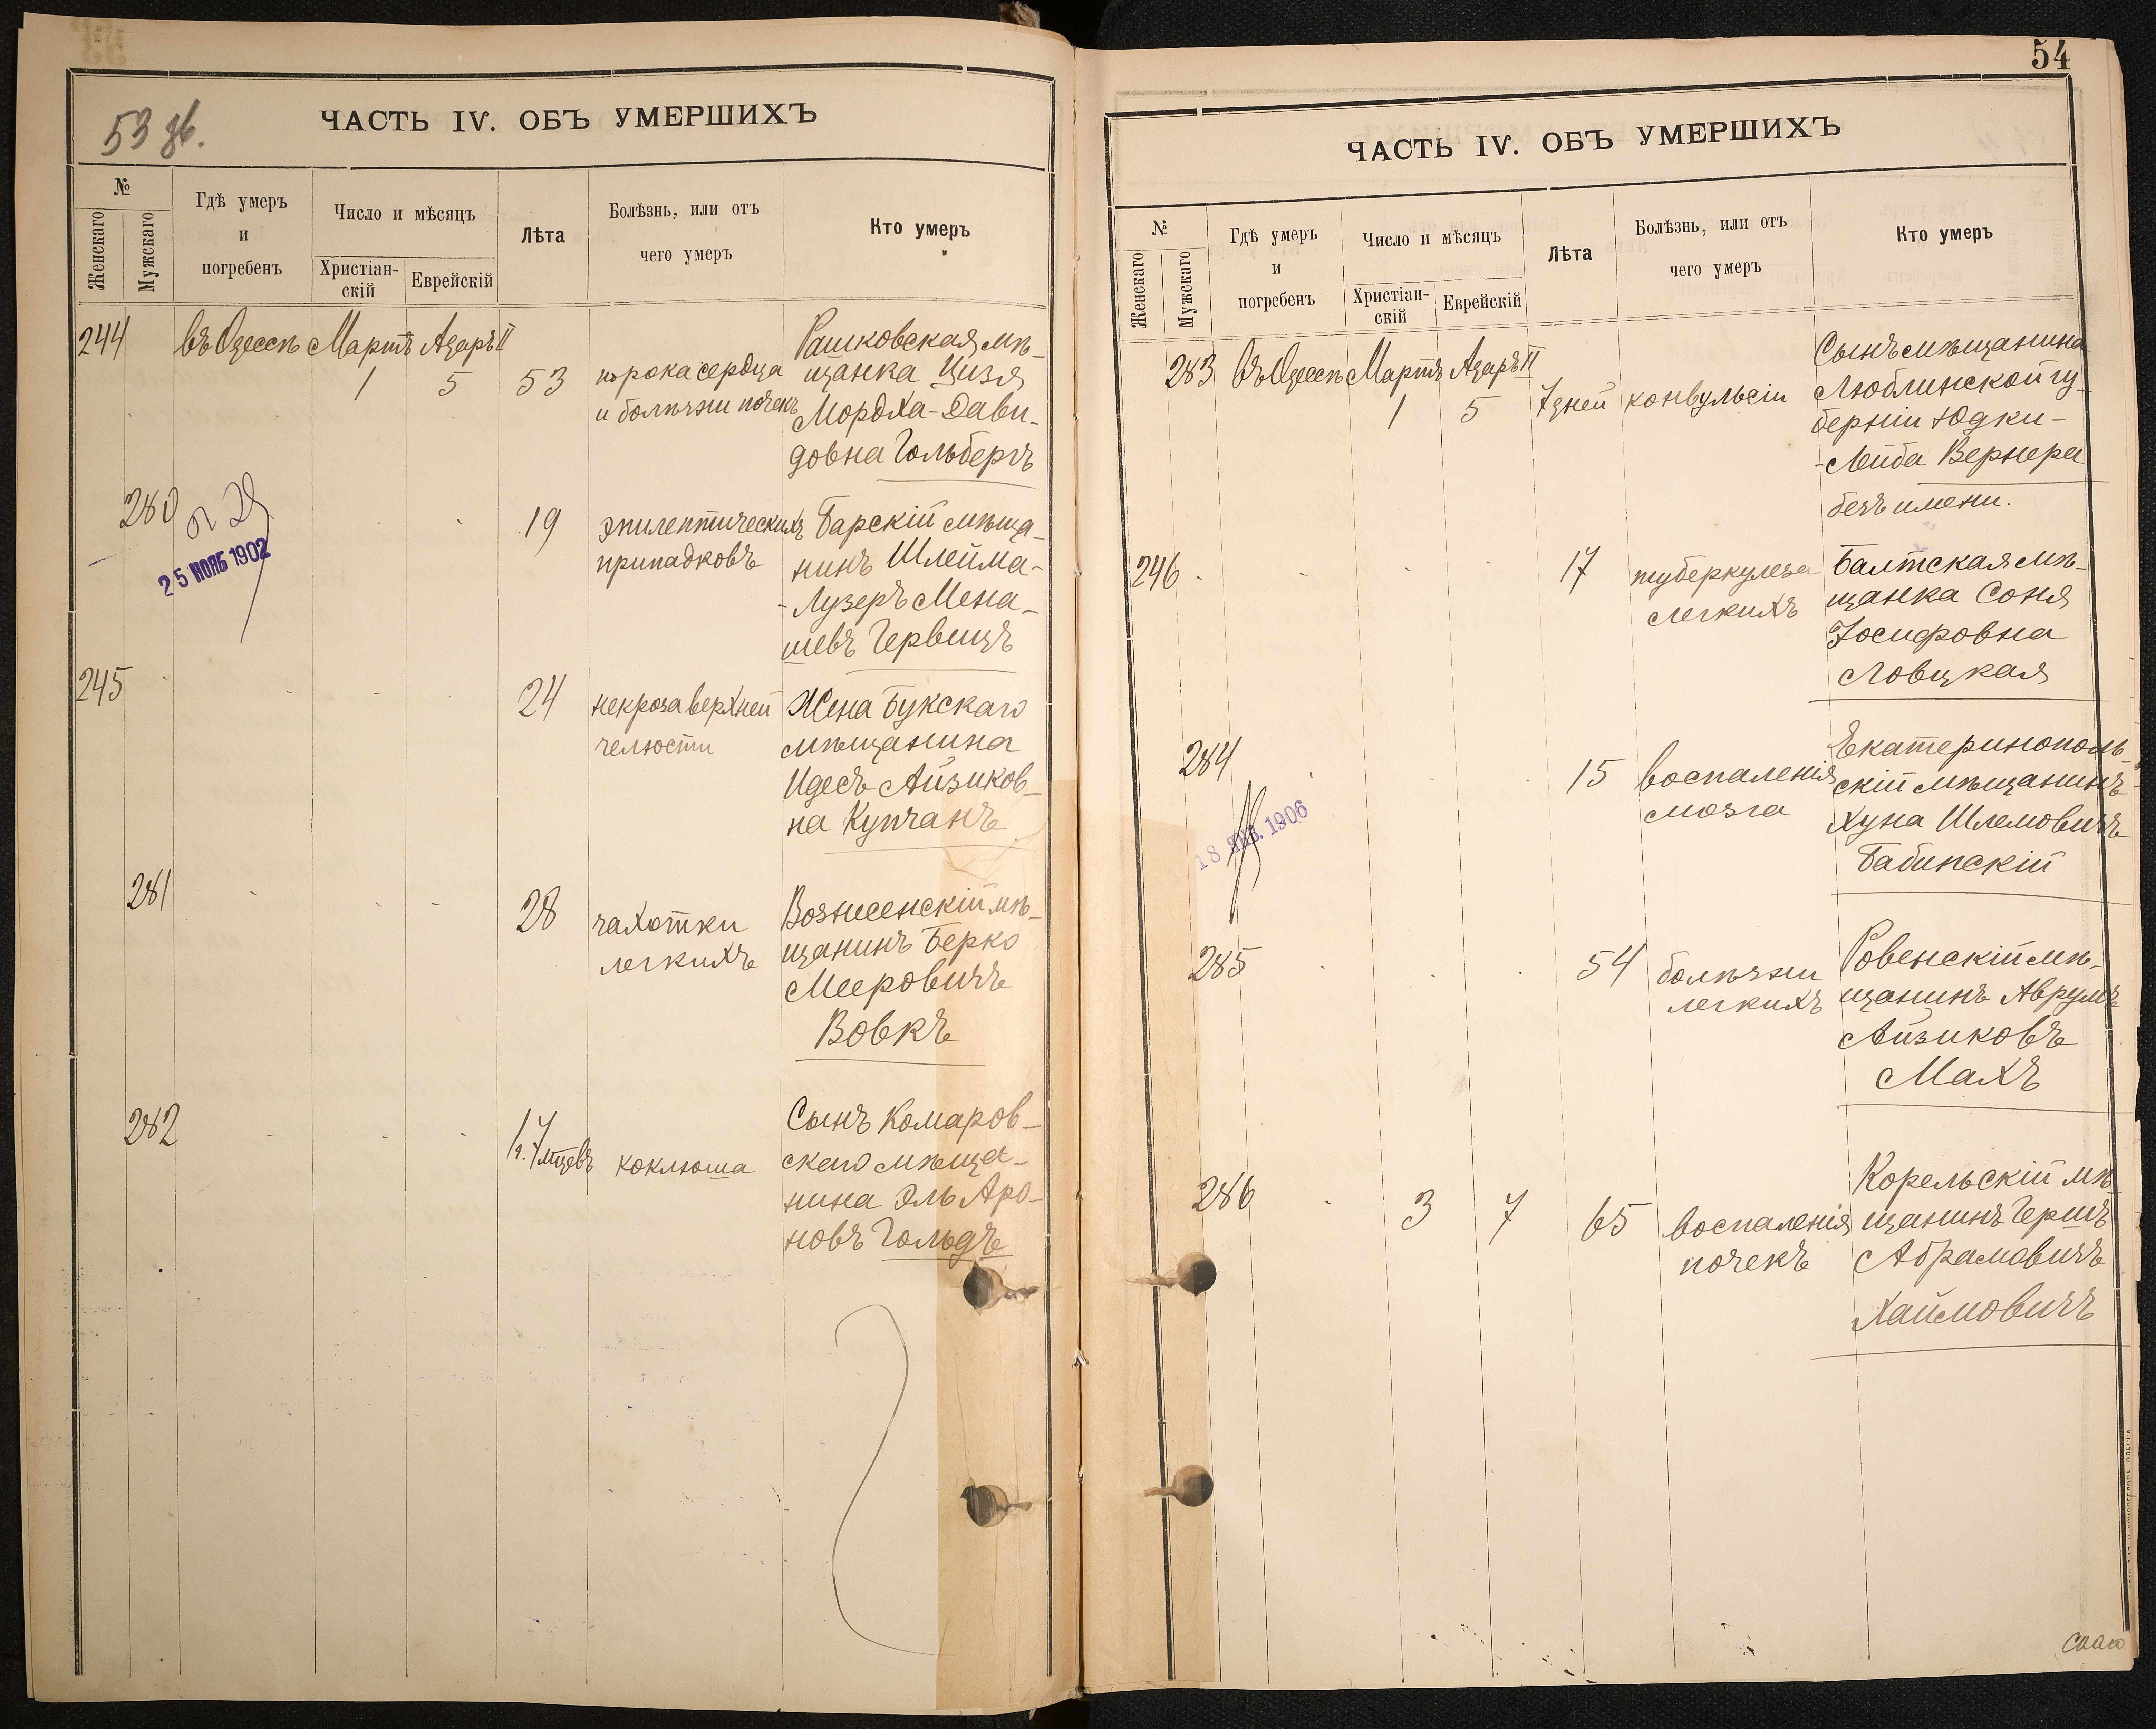 53 зв.
ЧАСТЬ IV. ОБЪ УМЕРШИХЪ
№
Женскаго
Мужскаго
Гдѣ умеръ
и
погребенъ
Число и мѣсяцъ
Христіан-
скій
Еврейскій
Лѣта
Болѣзнь, или отъ
чего умеръ
Кто умеръ
244 въ Одессѣ Мартъ Адаръ II
1 5 53
порока сердца
и болѣзни почекъ
Рашковская мѣ-
щанка Цизя
Мордха-Дави-
довна Гольбергъ
280
25 НОЯБ 1902
19
эпилептическихъ
припадковъ
Барскій мѣща-
нинъ Шлейма-
-Лузеръ Мена-
шевъ Гервицъ
245
24
некроза верхней
челюсти
Жена Букскаго
мѣщанина
Идесъ Айзиков-
на Купчанъ
281
28
чахотки
легкихъ
Вознесенскій мѣ-
щанинъ Берко
Мееровичъ
Вовкъ
282
1 г. 7 мцевъ
коклюша
Сынъ Комаров-
скаго мѣща-
нина Эль Аро-
новъ Гольдъ
54
ЧАСТЬ IV. ОБЪ УМЕРШИХЪ
№
Женскаго
Мужскаго
Гдѣ умеръ
и
погребенъ
Число и мѣсяцъ
Христіан-
скій
Еврейскій
Лѣта
Болѣзнь, или отъ
чего умеръ
Кто умеръ
283 въ Одессѣ Мартъ Адаръ II
1 5 7 дней
конвульсіи
Сынъ мѣщанина
Люблинской гу-
берніи Юдки-
-Лейба Вернера
безъ имени.
246
17
туберкулеза
легкихъ
Балтская мѣ-
щанка Соня
Іосифовна
Ловцкая
284
18 ЯНВ. 1906
15
воспаленія
мозга
Екатеринополь-
скій мѣщанинъ
Хуна Шлемовичъ
Бабинскій
285
54
болѣзни
легкихъ
Ровенскій мѣ-
щанинъ Аврумъ
Айзиковъ
Махъ
286
3 7 65
воспаленія
почекъ
Корельскій мѣ-
щанинъ Гершъ
Абрамовичъ
Хаймовичъ